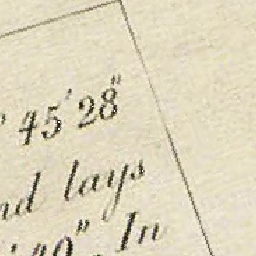 45' 28"
nd lays
In